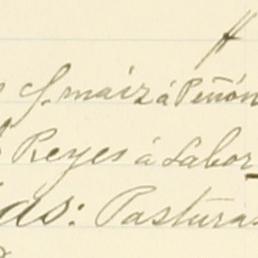 C. maiz á Peñón
Reyes á Labor
as: Pasturas